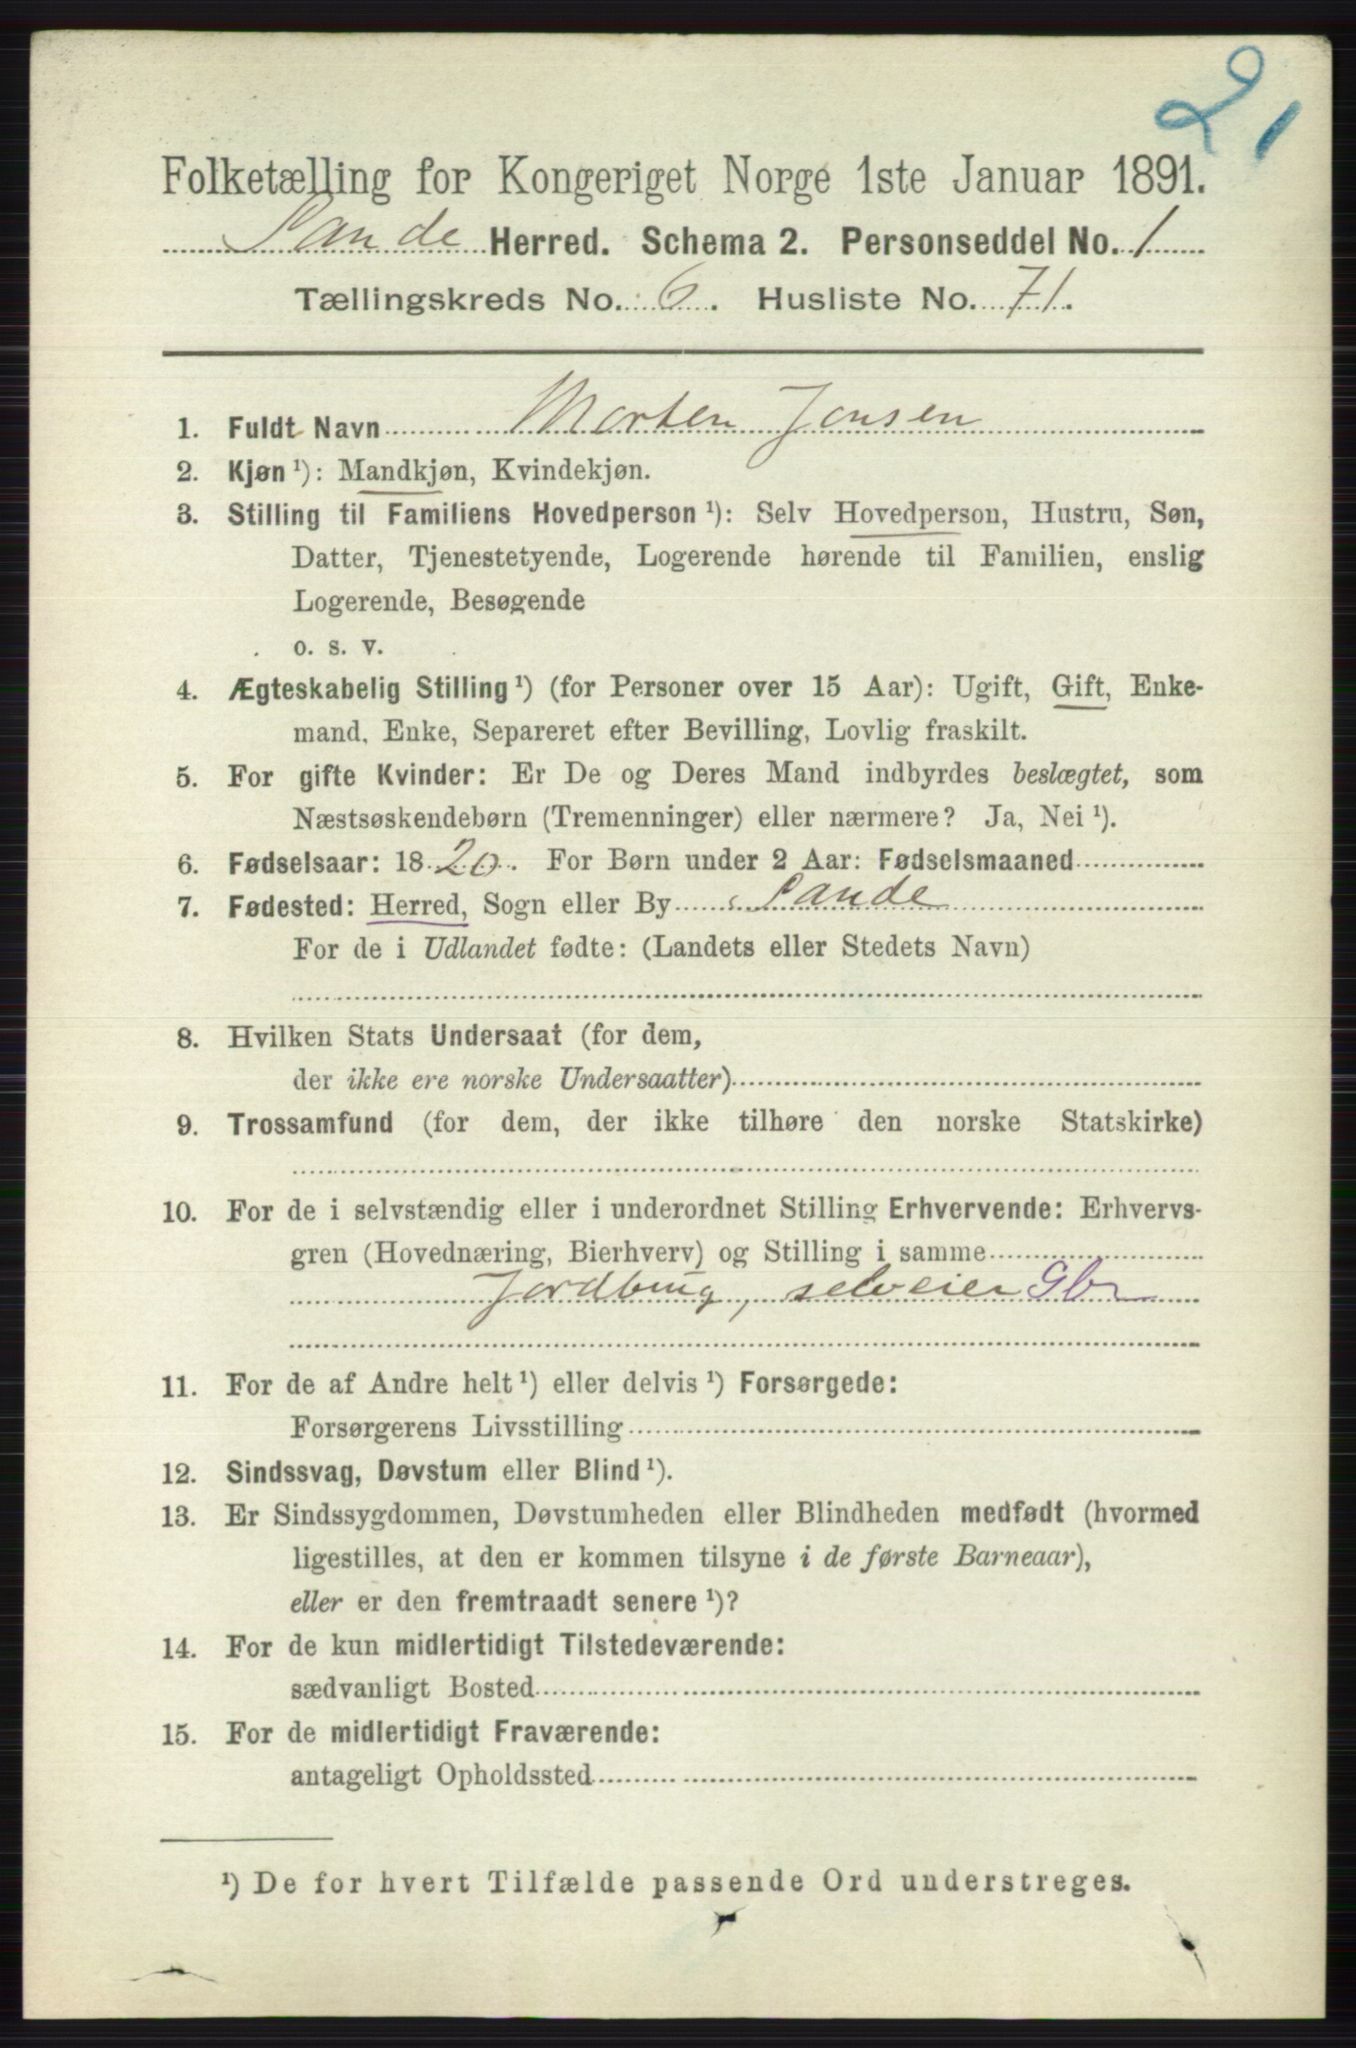 21
Folketælling for Kongeriget Norge 1ste Januar 1891.
Sande Herred. Schema 2. Personseddel No. 1
Tællingskreds No. 6. Husliste No. 71.
1. Fuldt Navn Morten Jonsen
2. Kjøn ¹): Mandkjøn, Kvindekjøn.
3. Stilling til Familiens Hovedperson ¹): Selv Hovedperson, Hustru, Søn,
Datter, Tjenestetyende, Logerende hørende til Familien, enslig
Logerende, Besøgende
o. s. v.
4. Ægteskabelig Stilling ¹) (for Personer over 15 Aar): Ugift, Gift, Enke-
mand, Enke, Separeret efter Bevilling, Lovlig fraskilt.
5. For gifte Kvinder: Er De og Deres Mand indbyrdes beslægtet, som
Næstsøskendebørn (Tremenninger) eller nærmere? Ja, Nei ¹).
6. Fødselsaar: 1820. For Børn under 2 Aar: Fødselsmaaned
7. Fødested: Herred, Sogn eller By Sande
For de i Udlandet fødte: (Landets eller Stedets Navn)
8. Hvilken Stats Undersaat (for dem,
der ikke ere norske Undersaatter)
9. Trossamfund (for dem, der ikke tilhøre den norske Statskirke)
10. For de i selvstændig eller i underordnet Stilling Erhvervende: Erhvervs-
gren (Hovednæring, Bierhverv) og Stilling i samme
Jordbrug, selveier Gbr
11. For de af Andre helt ¹) eller delvis ¹) Forsørgede:
Forsørgerens Livsstilling
12. Sindssvag, Døvstum eller Blind ¹).
13. Er Sindssygdommen, Døvstumheden eller Blindheden medfødt (hvormed
ligestilles, at den er kommen tilsyne i de første Barneaar),
eller er den fremtraadt senere ¹)?
14. For de kun midlertidigt Tilstedeværende:
sædvanligt Bosted
15. For de midlertidigt Fraværende:
antageligt Opholdssted
¹) De for hvert Tilfælde passende Ord understreges.